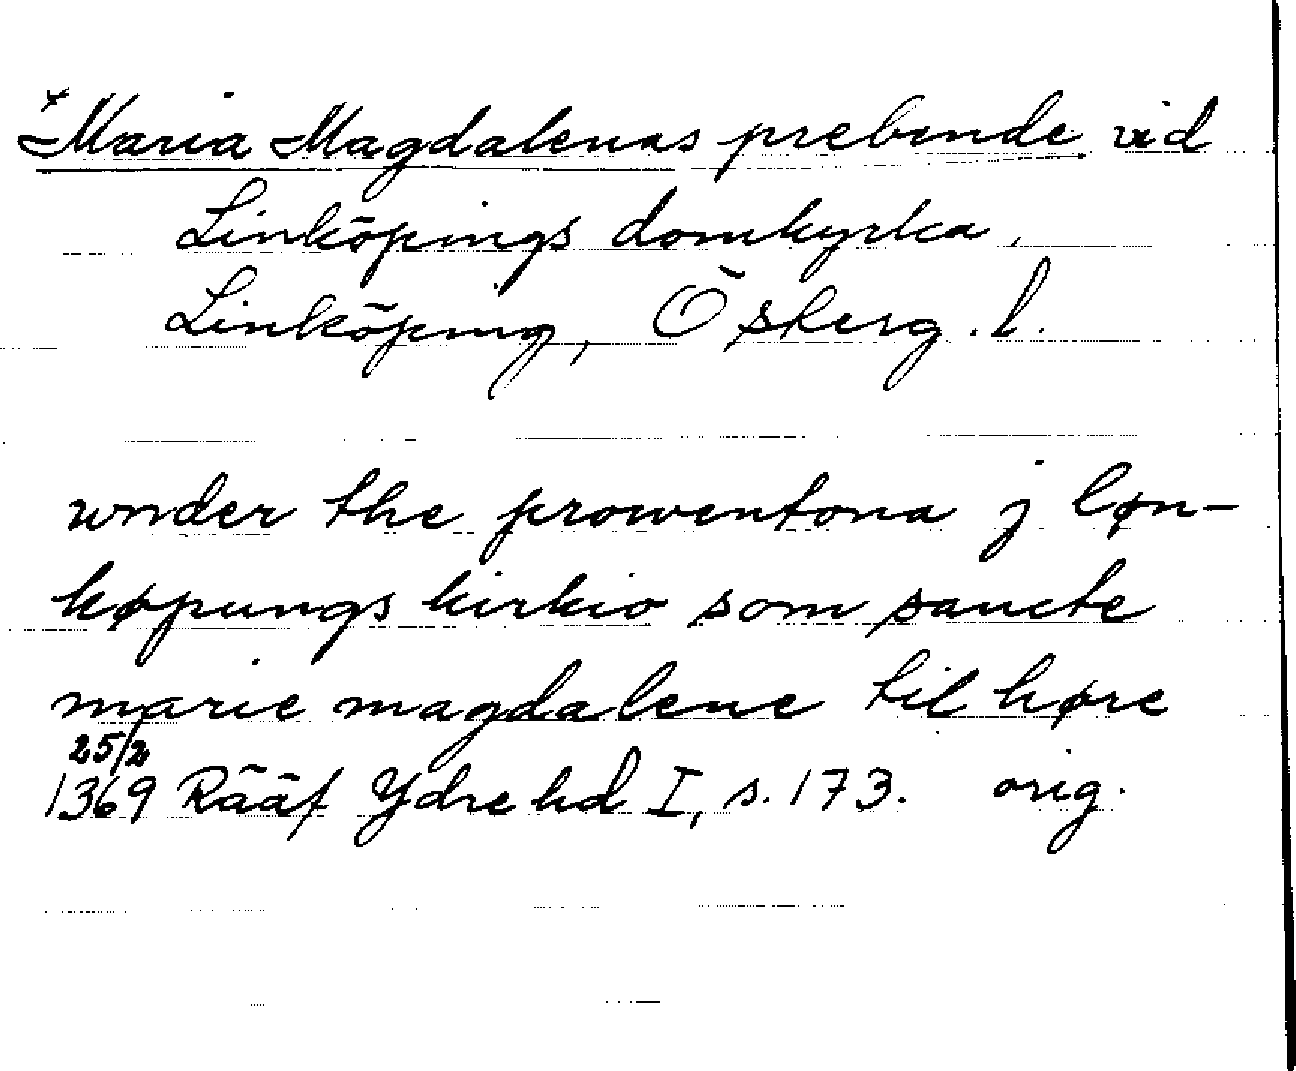 * Maria Magdalenas prebende vid
Linköpings domkyrka,
Linköping, Österg. l.
wnder the prowentona j løn-
køpungs kirkio som sancte
marie magdalene til høre
25/2
1369 Rääf Ydre hd I, s. 173. orig.